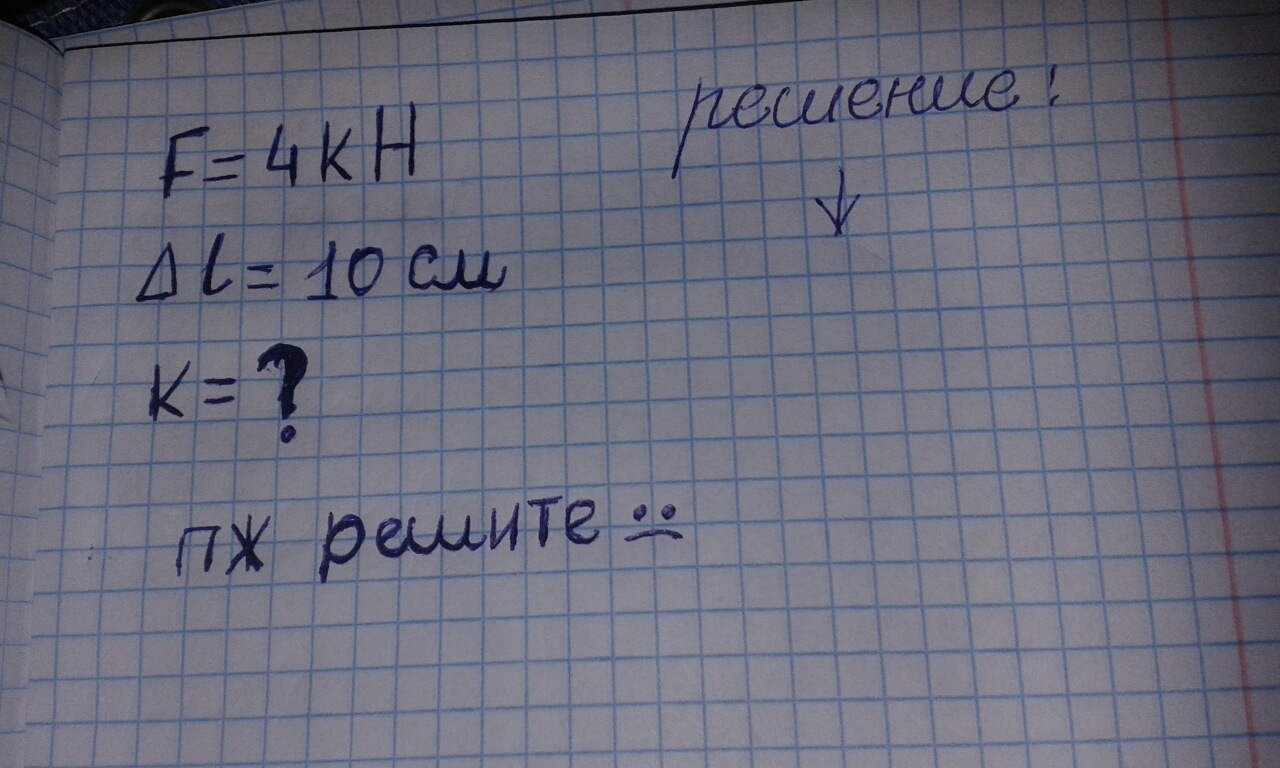 F = 4 кН
Δl = 10 см
к = ?
пж решите
решение:
↓